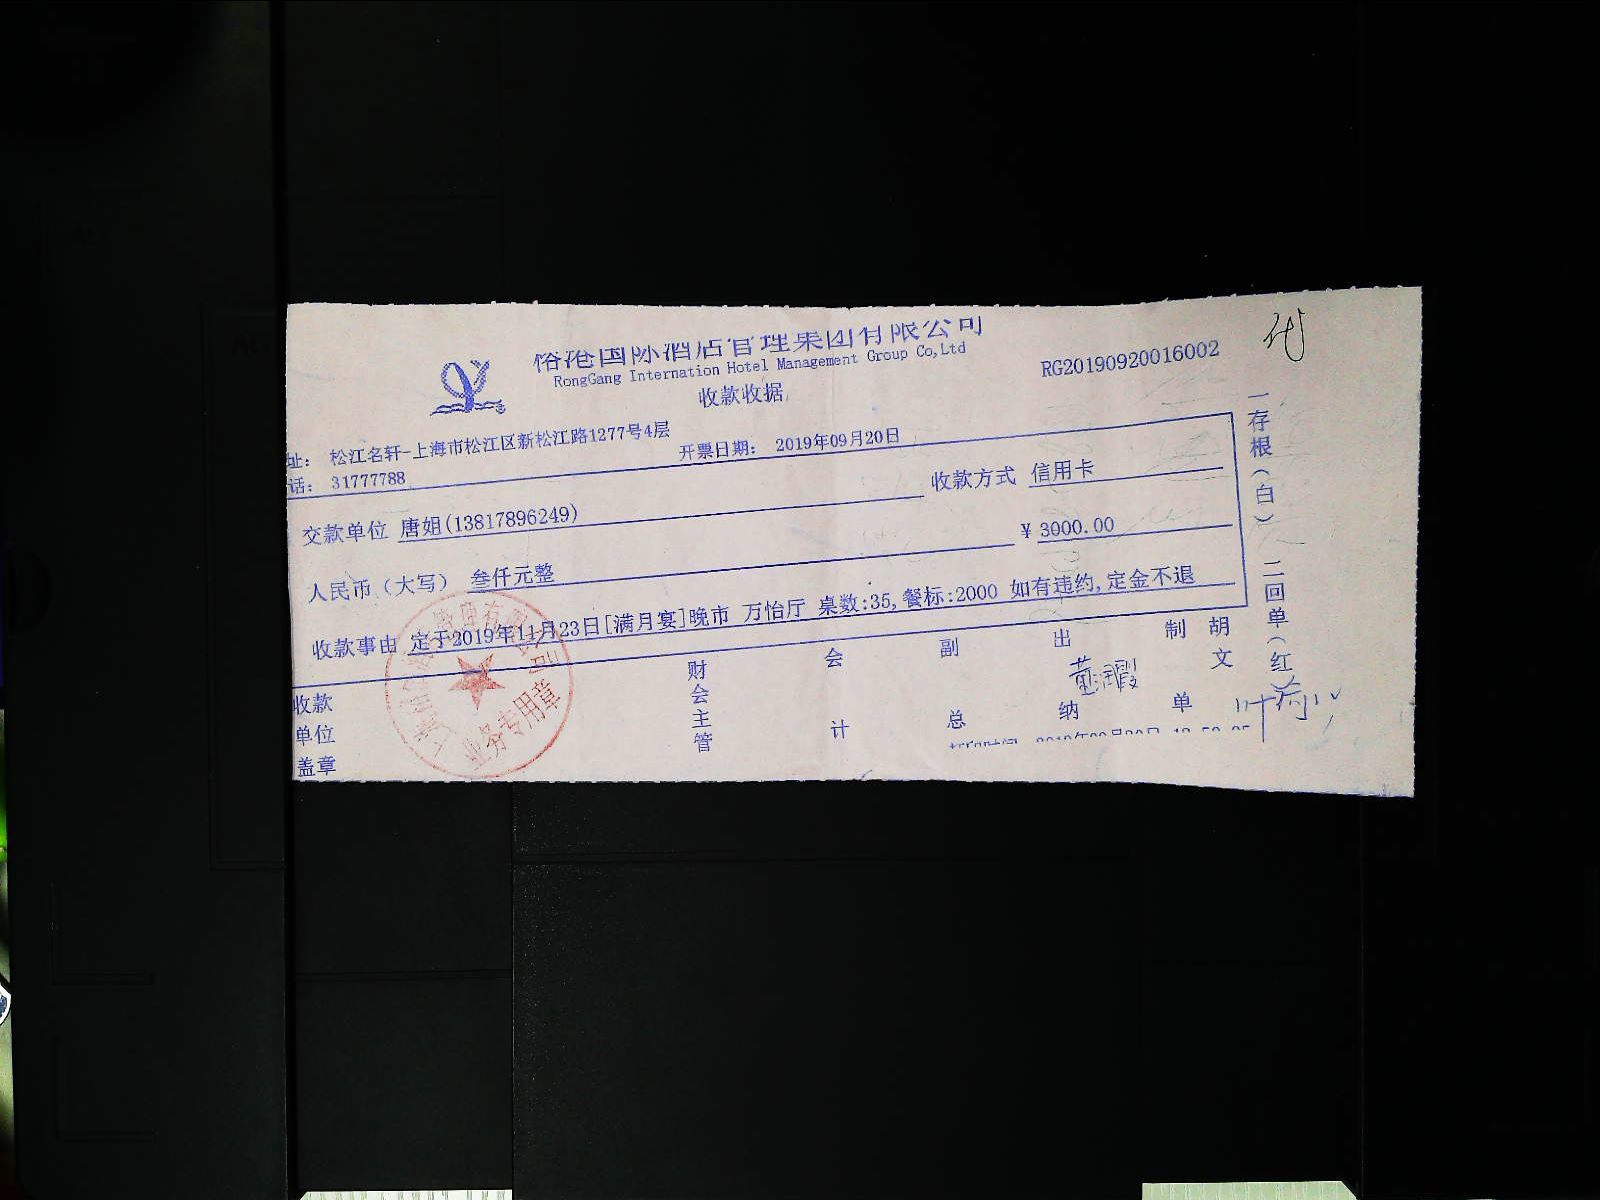 国际酒店管理集团有限公司
RongGang Internation Hotel Management Group Co,Ltd
收款收据
RG20190920016002
址: 松江名轩-上海市松江区新松江路1277号4层
话: 31777788
开票日期: 2019年09月20日
交款单位 唐姐(13817896249)
收款方式 信用卡
人民币（大写） 叁仟元整
¥ 3000.00
收款事由 定于2019年11月23日[满月宴]晚市 万怡厅 桌数:35,餐标:2000 如有违约,定金不退
收款单位盖章
财会主管
会计
副总
出纳
制单
胡文
一存根（白） 二回单（红）
业务专用章